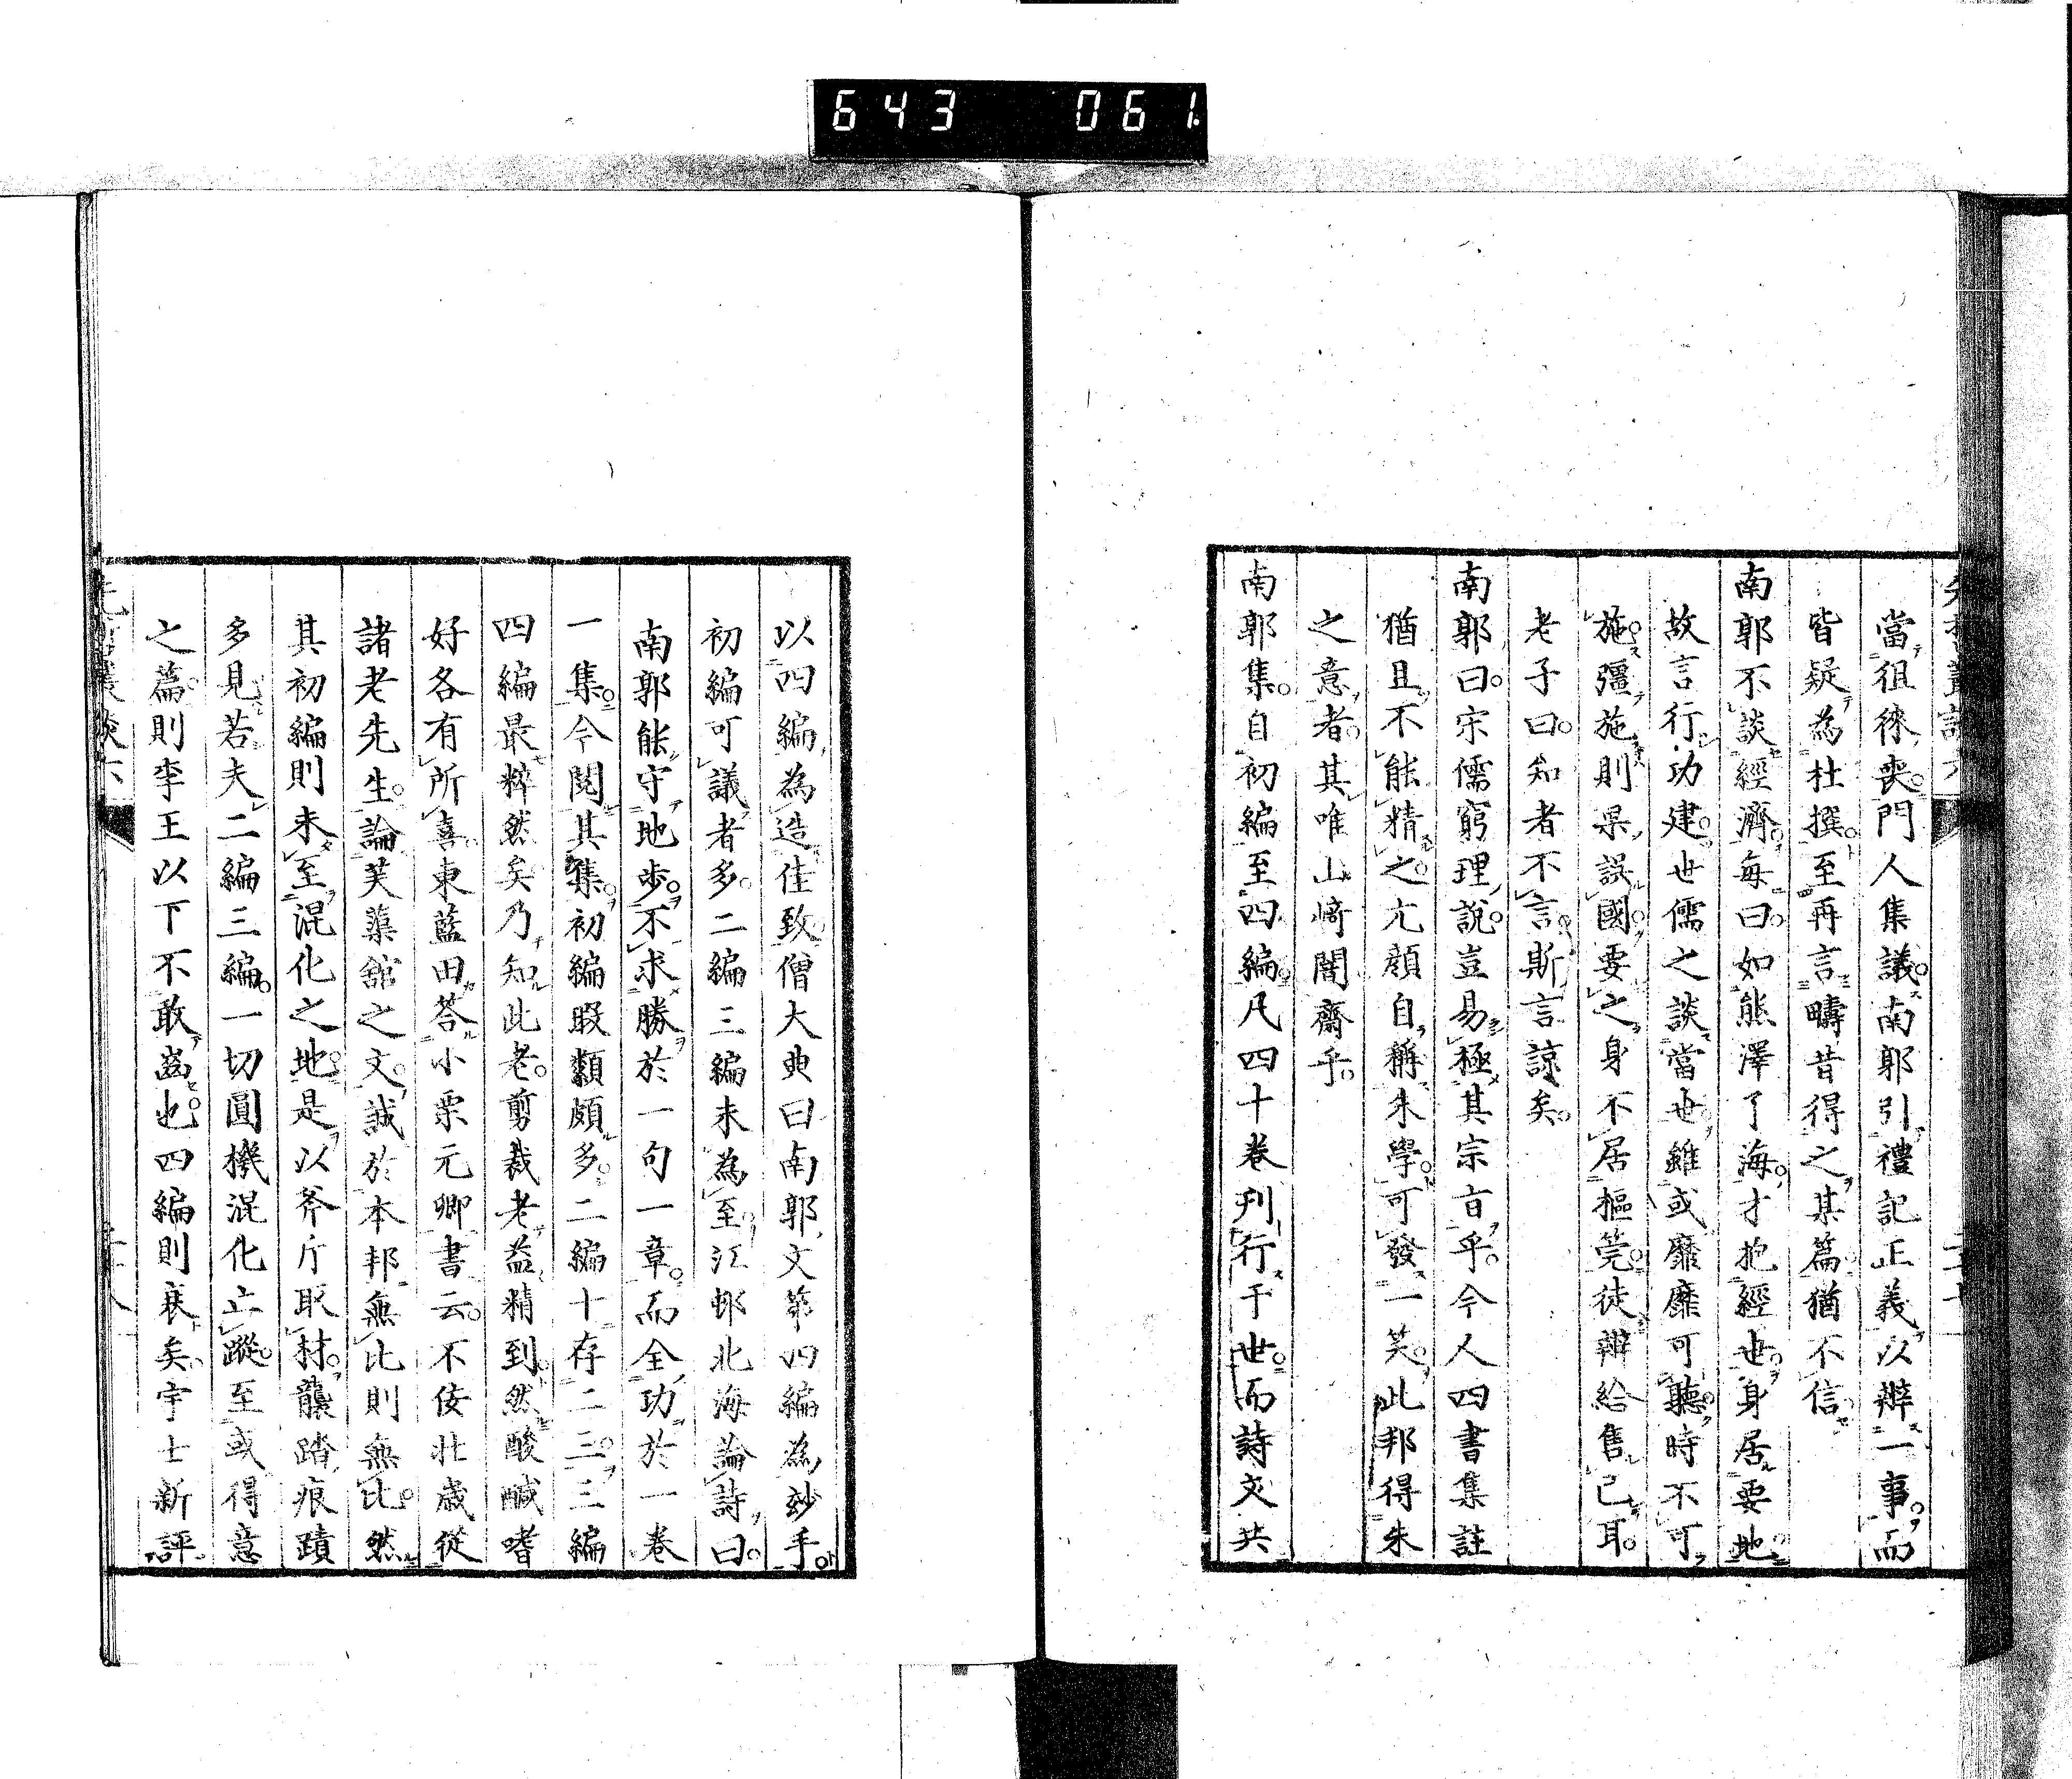 643 061
當徂徠喪門人集議南郭引禮記正義以辨一事而
皆疑為杜撰至再言疇昔得之某篇猶不信
南郭不談經濟每曰如熊澤了海才抱經世身居要地
故言行功建世儒之談當世雖或靡靡可聽時不可
施彊施則果誤國要之身不居樞筦徒辨給售己耳
老子曰知者不言斯言諒矣
南郭曰宋儒窮理說豈易極其宗旨乎今人四書集註
猶且不能精之亢顏自稱朱學可發一笑此邦得朱
之意者其唯山﨑闇齋乎
南郭集自初編至四編凡四十卷刊行于世而詩文共
以四編為造佳致僧大典曰南郭文第四編為妙手
初編可議者多二編三編未為至江邨北海論詩曰
南郭能守地步不求勝於一句一章而全功於一卷
一集今閱其集初編瑕纇頗多二編十存二三三編
四編最粹然矣乃知此老剪裁老益精到然酸鹹嗜
好各有所喜東藍田答小栗元卿書云不佞壯歲從
諸老先生論芙蕖館之文誠於本邦無比則無比然
其初編則未至混化之地是以斧斤取材襲踏痕蹟
多見若夫二編三編一切圓機混化亡蹤至或得意
之篇則李王以下不敢齒也四編則衰矣宇士新評